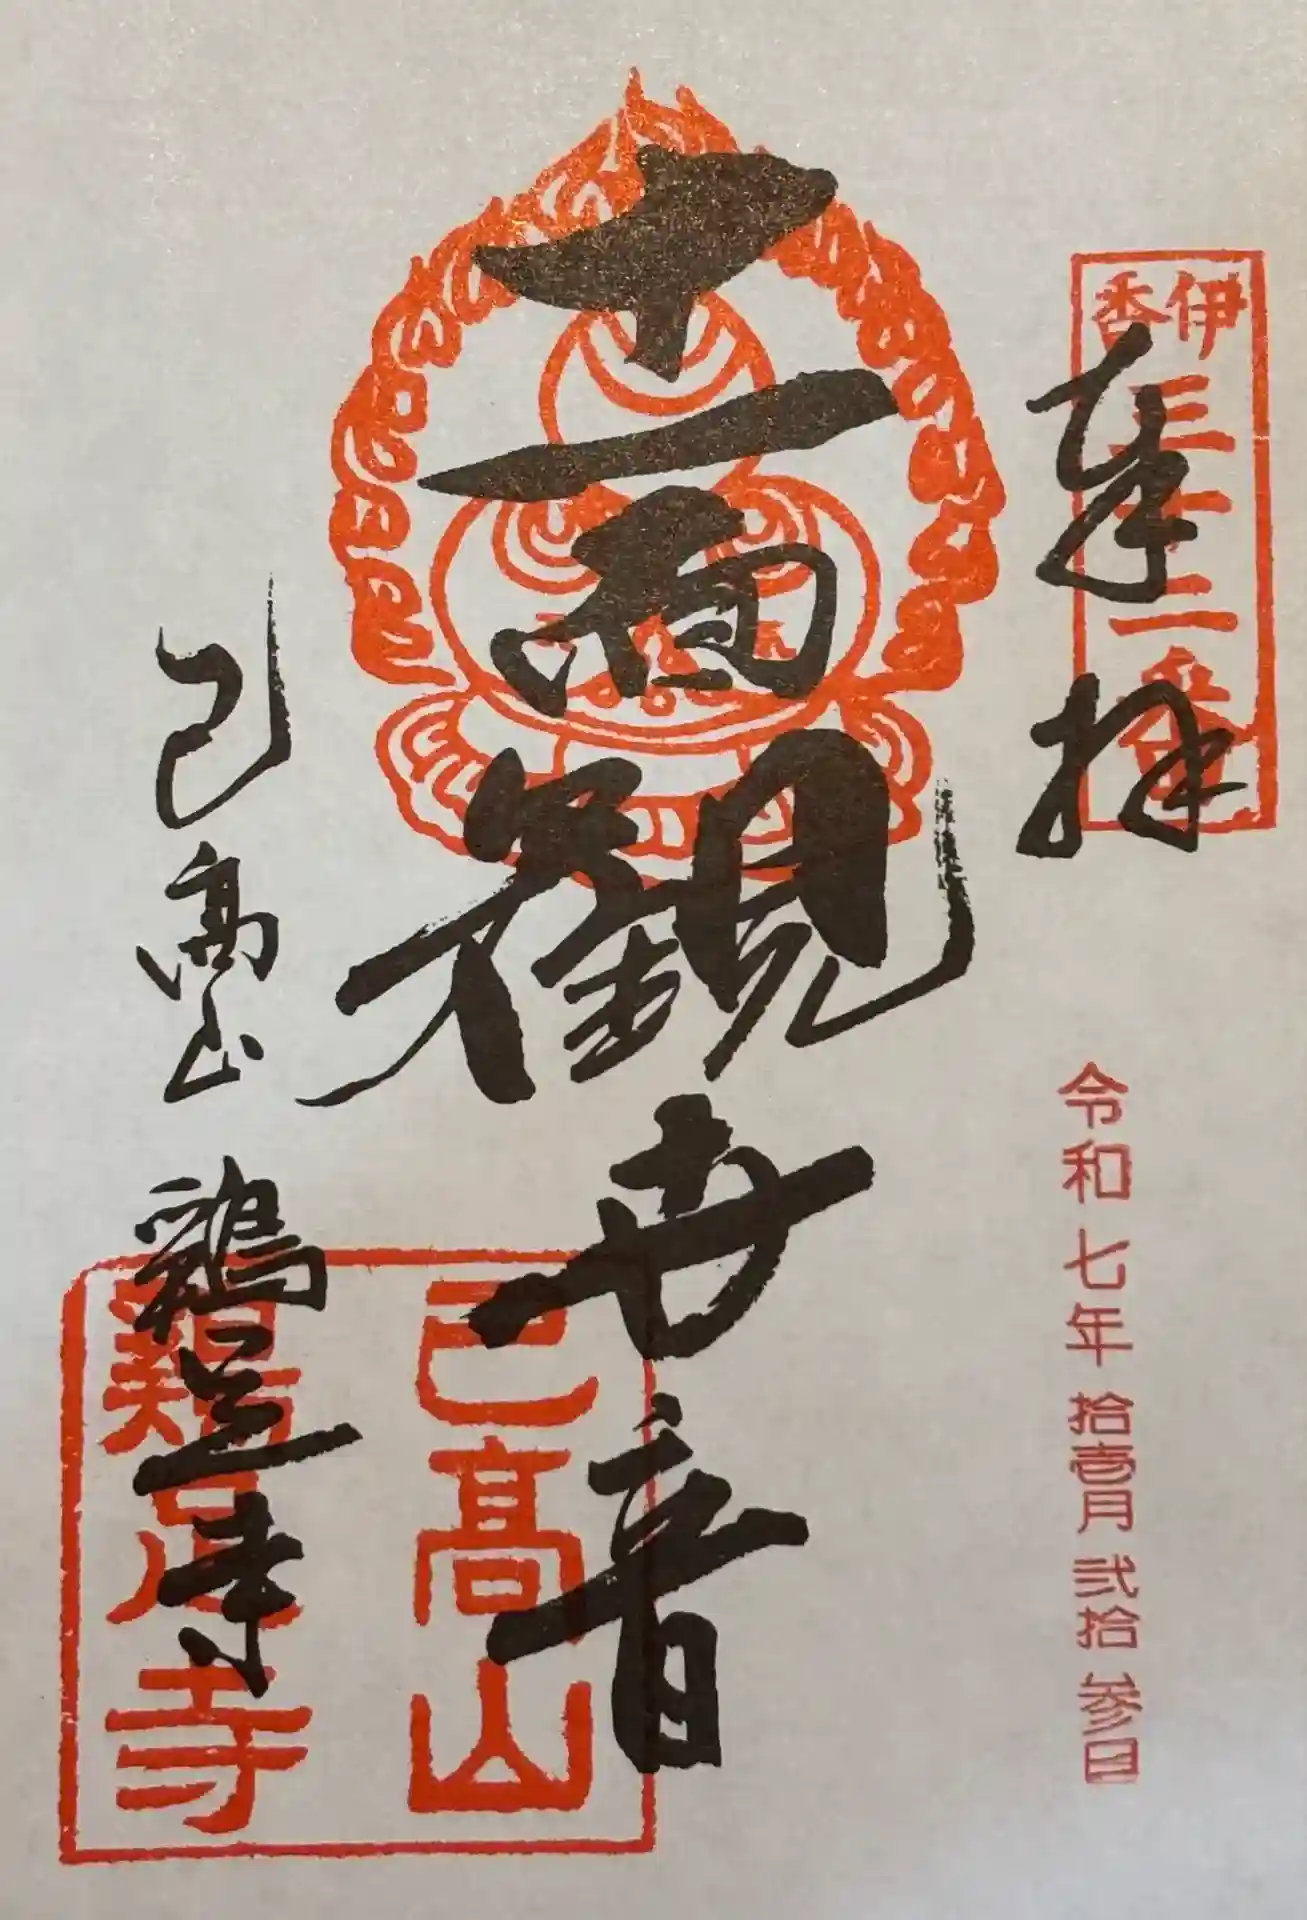 伊香
三十二番
奉拝
令和七年拾壱月弐拾参日
十一面観世音
己高山
鶏足寺
己高山
鶏足寺